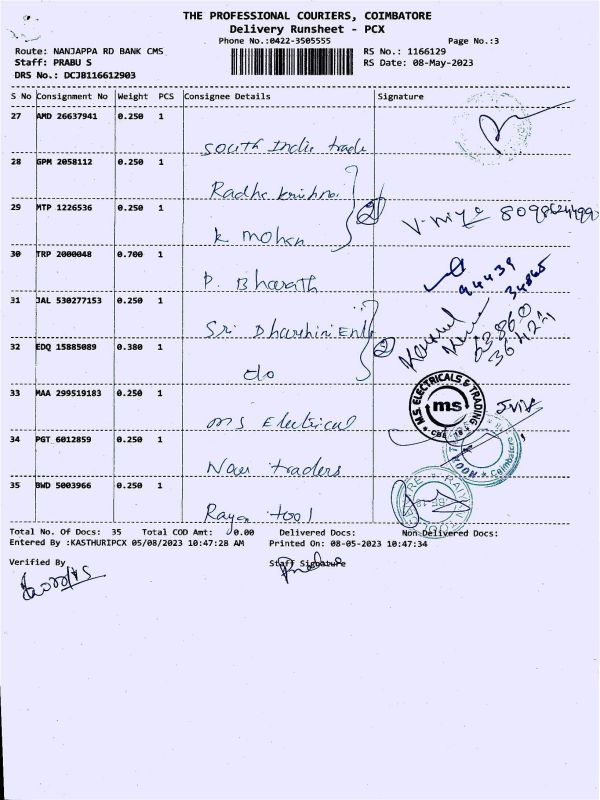 THE PROFESSIONAL COURIERS, COIMBATORE
Delivery Runsheet - PCX
Phone No.:0422-3505555 Page No.:3
Route: NANJAPPA RD BANK CMS RS No.: 1166129
Staff: PRABU S RS Date: 08-May-2023
DRS No.: DCJB116612903
S No Consignment No Weight PCS Consignee Details Signature
27 AMD 26637941 0.250 1
South India trade
28 GPM 2058112 0.250 1
Radha krishna
29 MTP 1226536 0.250 1 2
K mohan
30 TRP 2000048 0.700 1
P. Bharath 94439
34865
31 JAL 530277153 0.250 1
Sri Dharshini Ent
32 EDQ 15885089 0.380 1 2
do
33 MAA 299519183 0.250 1
M.S. ELECTRICALS & TRADING
ms
CBE
ms Electrical
34 PGT 6012859 0.250 1
Coimbatore
traders
35 BWD 5003966 0.250 1
tool
Total No. Of Docs: 35 Total COD Amt: 0.00 Delivered Docs: Non Delivered Docs:
Entered By :KASTHURIPCX 05/08/2023 10:47:28 AM Printed On: 08-05-2023 10:47:34
Verified By Staff Signature